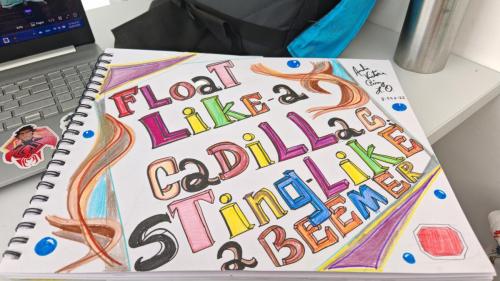 FLoaT
LiKE-a
CaDiLLaC.
STing-LiKE
a BEEMER